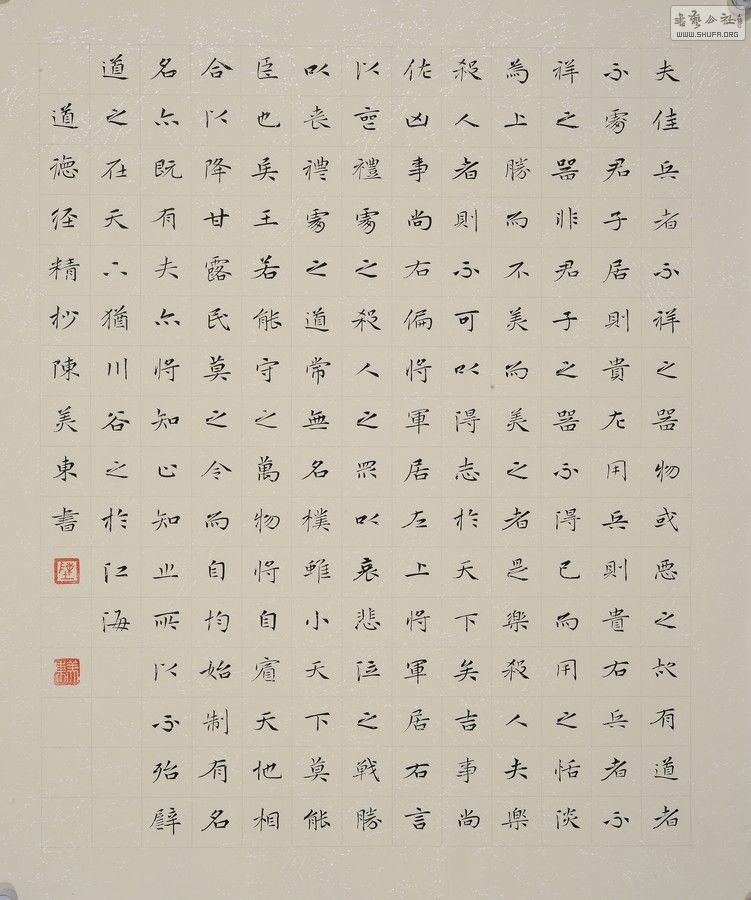 夫佳兵者不祥之器物或惡之故有道者
不處君子居則貴左用兵則貴右兵者不
祥之器非君子之器不得已而用之恬淡
為上勝而不美而美之者是樂殺人夫樂
殺人者則不可以得志於天下矣吉事尚
佐凶事尚右偏將軍居左上將軍居右言
以喪禮處之殺人之眾以哀悲泣之戰勝
以喪禮處之道常無名樸雖小天下莫能
臣也矦王若能守之萬物將自賓天地相
合以降甘露民莫之令而自均始制有名
名亦既有夫亦將知止知止所以不殆譬
道之在天下猶川谷之於江海
道德經精抄陳美東書
書藝公社
WWW.SHUFA.ORG